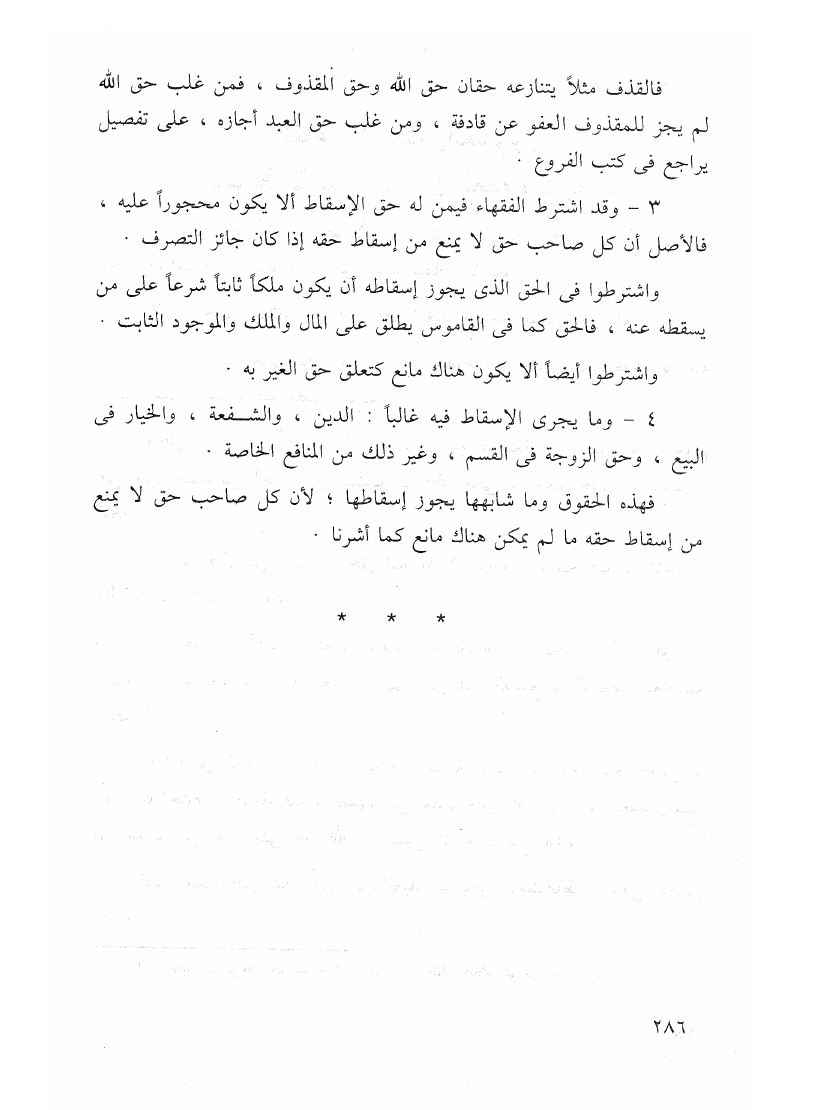 فالقذف مثلاً يتنازعه حقان حق الله وحق المقذوف ، فمن غلب حق الله
لم يجز للمقذوف العفو عن قادفة ، ومن غلب حق العبد أجازه ، على تفصيل
يراجع فى كتب الفروع .
٣ - وقد اشترط الفقهاء فيمن له حق الإسقاط ألا يكون محجوراً عليه ،
فالأصل أن كل صاحب حق لا يمنع من إسقاط حقه إذا كان جائز التصرف .
واشترطوا فى الحق الذى يجوز إسقاطه أن يكون ملكاً ثابتاً شرعاً على من
يسقطه عنه ، فالحق كما فى القاموس يطلق على المال والملك والموجود الثابت .
واشترطوا أيضاً ألا يكون هناك مانع كتعلق حق الغير به .
٤ - وما يجرى الإسقاط فيه غالباً : الدين ، والشفعة ، والخيار فى
البيع ، وحق الزوجة فى القسم ، وغير ذلك من المنافع الخاصة .
فهذه الحقوق وما شابهها يجوز إسقاطها ؛ لأن كل صاحب حق لا يمنع
من إسقاط حقه ما لم يمكن هناك مانع كما أشرنا .
* * *
٢٨٦